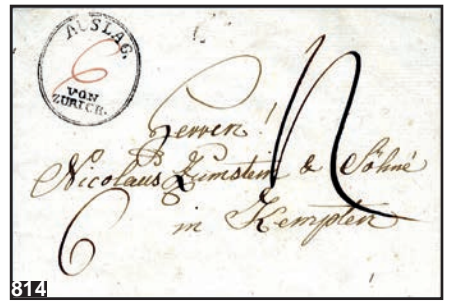 AUSLAG.
6
VON
ZURICH.
Herren!
Nicolaus Zumstein & Söhne
in Kempten
6
814